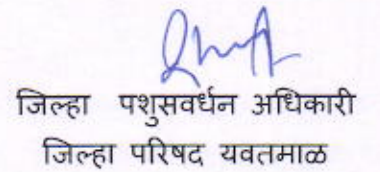 जिल्हा पशुसवर्धन अधिकारी
जिल्हा परिषद यवतमाळ